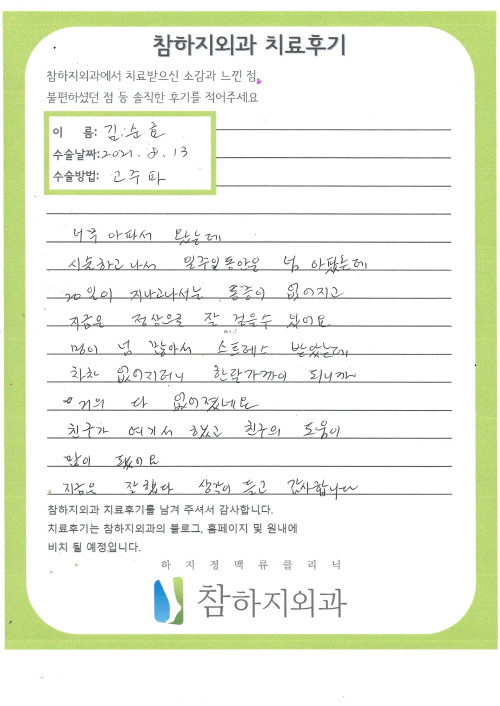 참하지외과 치료후기
참하지외과에서 치료받으신 소감과 느낀 점,
불편하셨던 점 등 솔직한 후기를 적어주세요
이 름: 김순효
수술날짜: 2021. 8. 13
수술방법: 고주파
너무 아파서 왔는데
시술하고 나서 일주일동안은 넘 아팠는데
20일이 지나고나서는 통증이 없어지고
지금은 정상으로 잘 걸을수 있어요
멍이 넘 많아서 스트레스 받았는데
차차 없어지더니 한달가까이 되니까
거의 다 없어졌네요
친구가 여기서 했고 친구의 도움이
많이 됐어요
지금은 잘했다 생각이 들고 감사합니다
참하지외과 치료후기를 남겨 주셔서 감사합니다.
치료후기는 참하지외과의 블로그, 홈페이지 및 원내에
비치 될 예정입니다.
하지정맥류클리닉
참하지외과